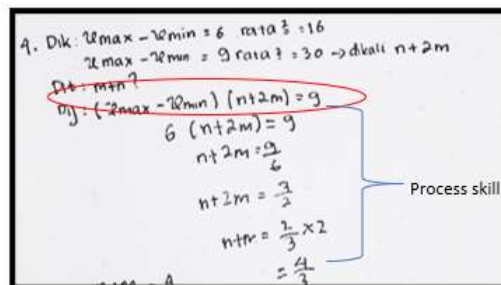 4. Dik: xmax - xmin = 6 rata² = 16
xmax - xmin = 9 rata² = 30 → dikali n+2m
Dit: m+n?
Dij: (xmax - xmin) (n+2m) = 9
6 (n+2m) = 9
n+2m = 9/6
n+2m = 3/2
n+m = 2/3 x 2
= 4/3
Process skill